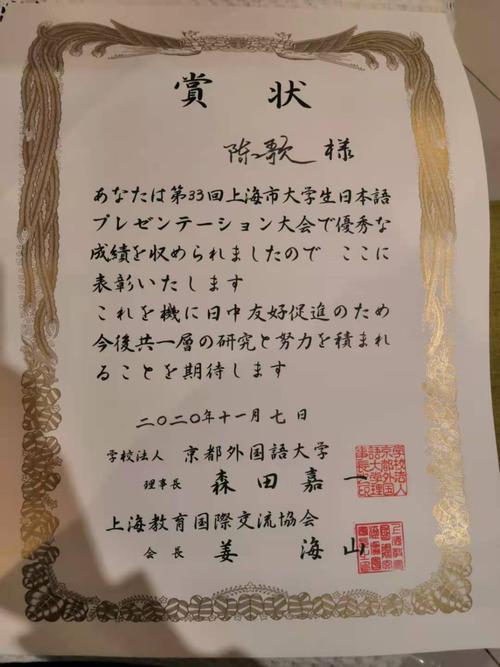 賞 状
陈歌 様
あなたは第33回上海市大学生日本語
プレゼンテーション大会で優秀な
成績を収められましたので ここに
表彰いたします
これを機に日中友好促進のため
今後共一層の研究と努力を積まれ
ることを期待します
二〇二〇年十一月七日
学校法人 京都外国語大学
理事長 森田嘉一
学校法人京都外国語大学理事長印
上海教育国際交流協会
会長 姜海山